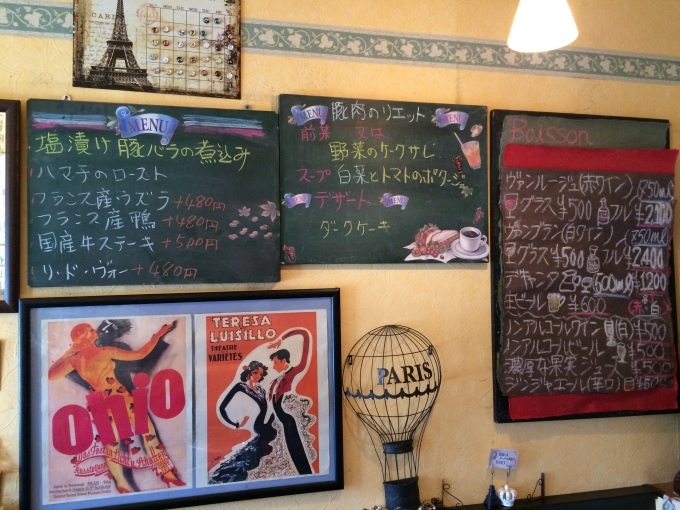 PARIS
MENU
塩漬け豚バラの煮込み
ハマチのロースト
フランス産ウズラ+480円
フランス産鴨+480円
国産牛ステーキ+500円
リ・ド・ヴォー+480円
MENU MENU
豚肉のリエット
前菜 又は
野菜のケークサレ
スープ 白菜とトマトのポタージュ
MENU デザート MENU
ダークケーキ
Boisson
ヴァンルージュ(赤ワイン) 750ml
グラス¥500 フル¥2,100
ヴァンブラン(白ワイン) 750ml
グラス¥500 フル¥2,400
500ml ¥1,200
生ビール ¥600
ノンアルコールワイン ¥500
ノンアルコールビール ¥500
濃厚な果実ジュース ¥500
ジンジャエール(辛口)
ohio
TERESA
LUISILLO
THEATRE
VARIETÉS
PARIS